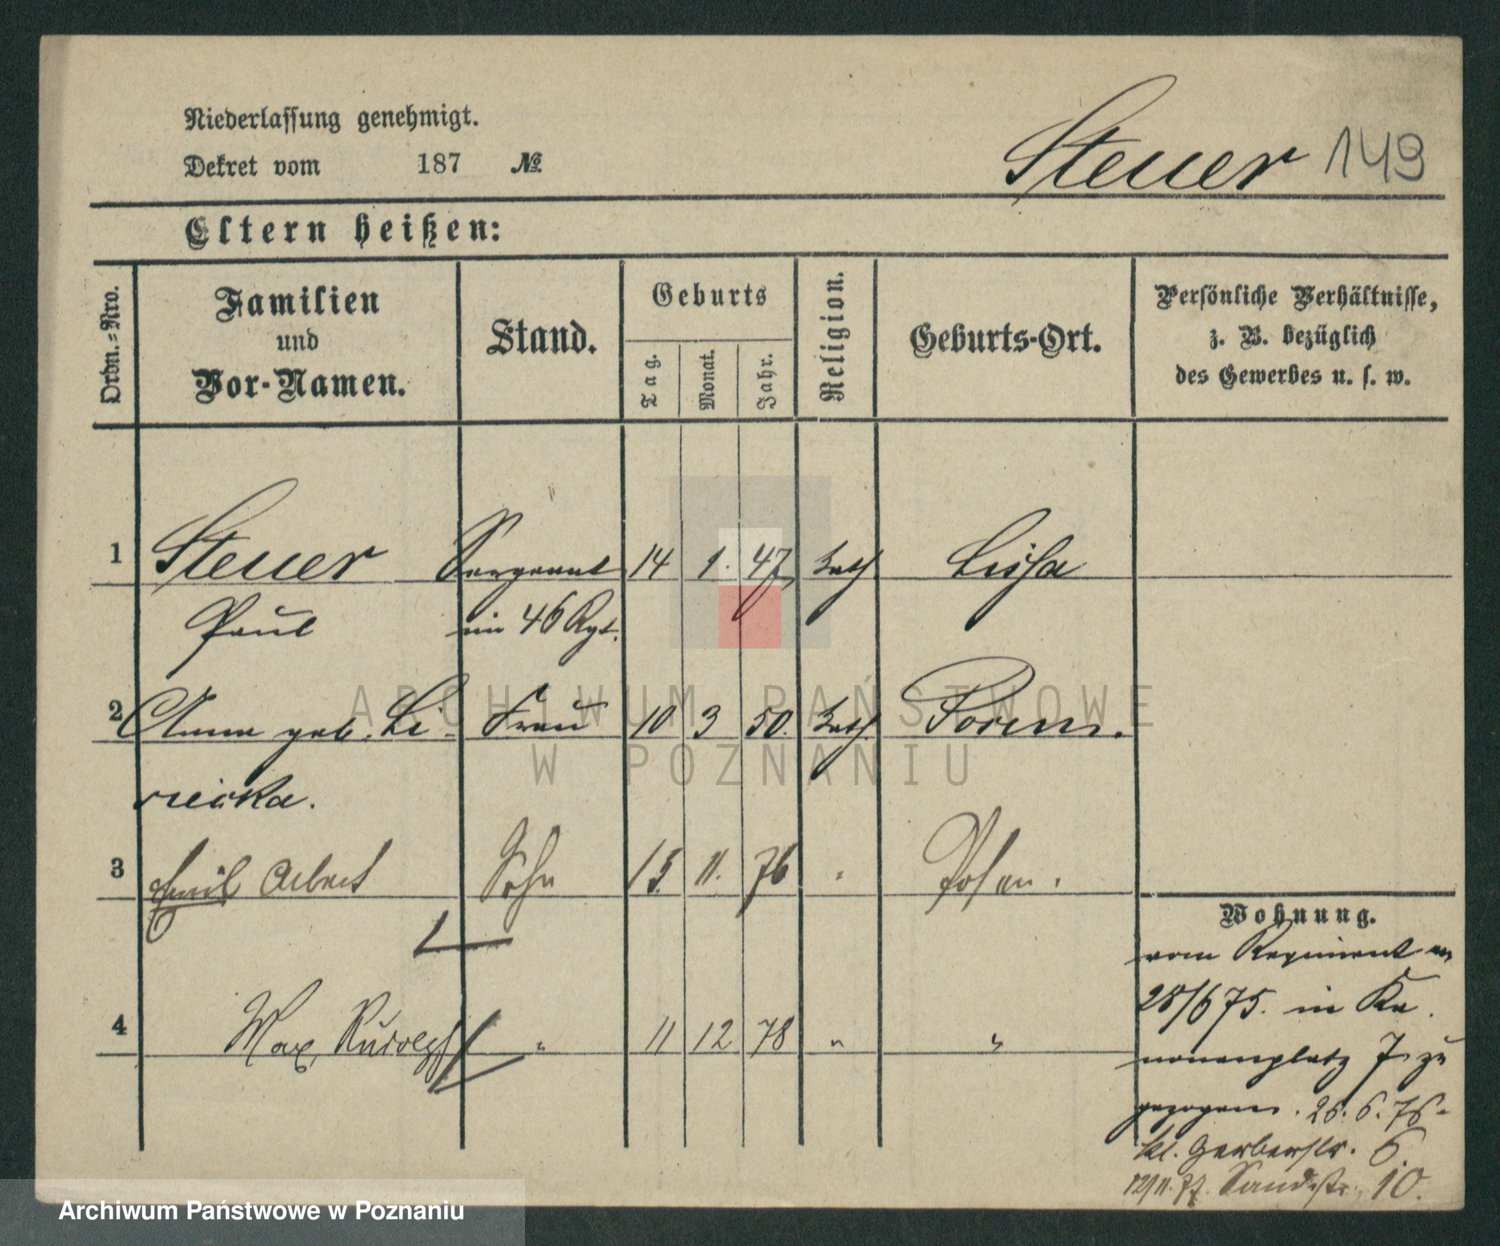 Niederlassung genehmigt.
Dekret vom 187 №
Steuer 149
Eltern heißen:
Ordn.-Nro.
Familien
und
Vor-Namen.
Stand.
Geburts
Tag.
Monat.
Jahr.
Religion.
Geburts-Ort.
Persönliche Verhältnisse,
z. B. bezüglich
des Gewerbes u. s. w.
1 Steuer Sergeant 14 1. 47 kath Lissa
Paul im 46 Rgt.
2 Anna geb. Frau 10 3 50. kath.
3 Emil Albert Sohn 15. 11. 76 " Posen.
4 Max, Rudolph " 11 12 78 " "
Wohnung.
vom Regiment
28/6 75. in Ka
nonenplatz 7. zu
gezogen. 26. 6. 76
kl. Gerberstr. 6.
12/11. 77. Sandstr. 10.
ARCHIWUM PAŃSTWOWE
W POZNANIU
Archiwum Państwowe w Poznaniu